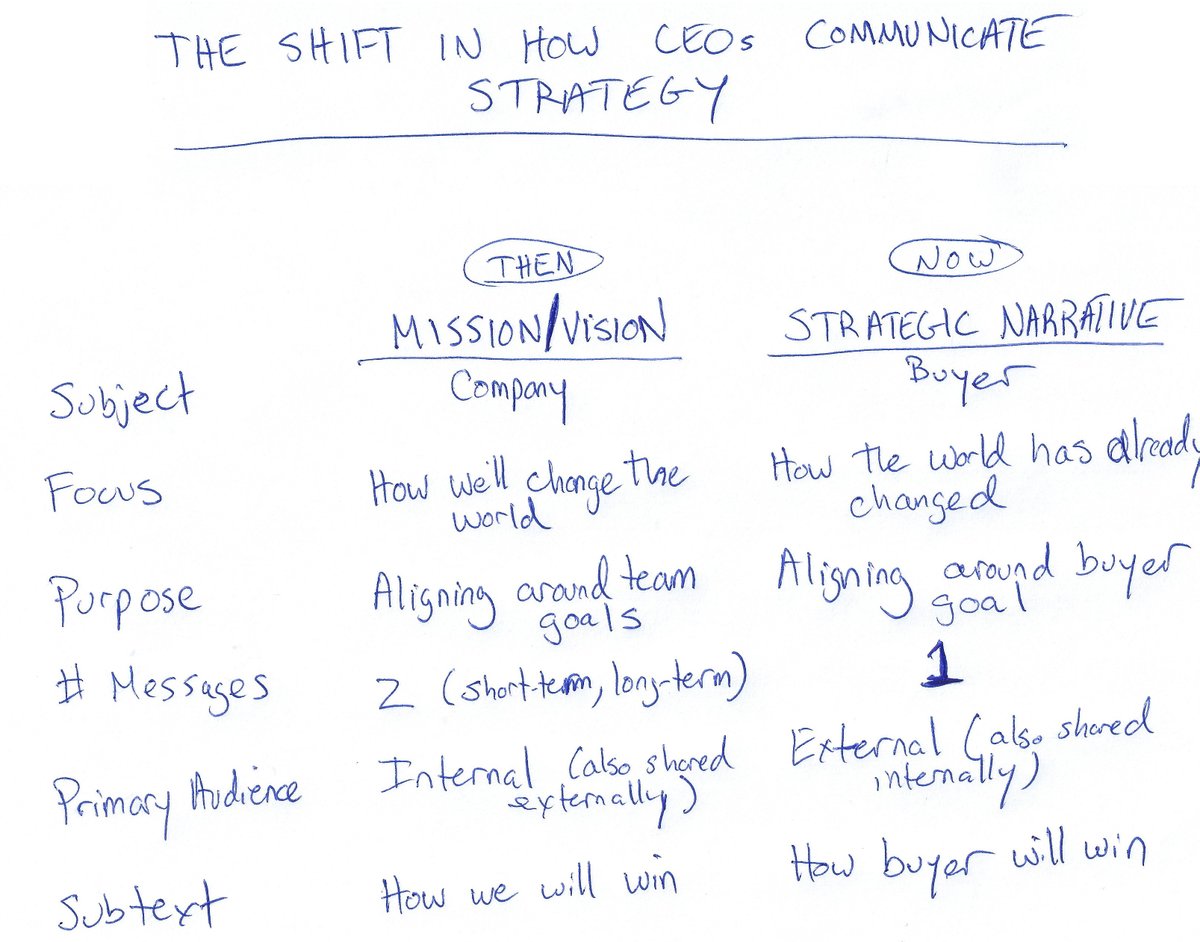 THE SHIFT IN HOW CEOs COMMUNICATE
STRATEGY
THEN
NOW
MISSION/VISION
STRATEGIC NARRATIVE
Subject
Company
Buyer
Focus
How we'll change the
world
How the world has already
changed
Purpose
Aligning around team
goals
Aligning around buyer
goal
# Messages
2 (short-term, long-term)
1
Primary Audience
Internal (also shared
externally)
External (also shared
internally)
Subtext
How we will win
How buyer will win